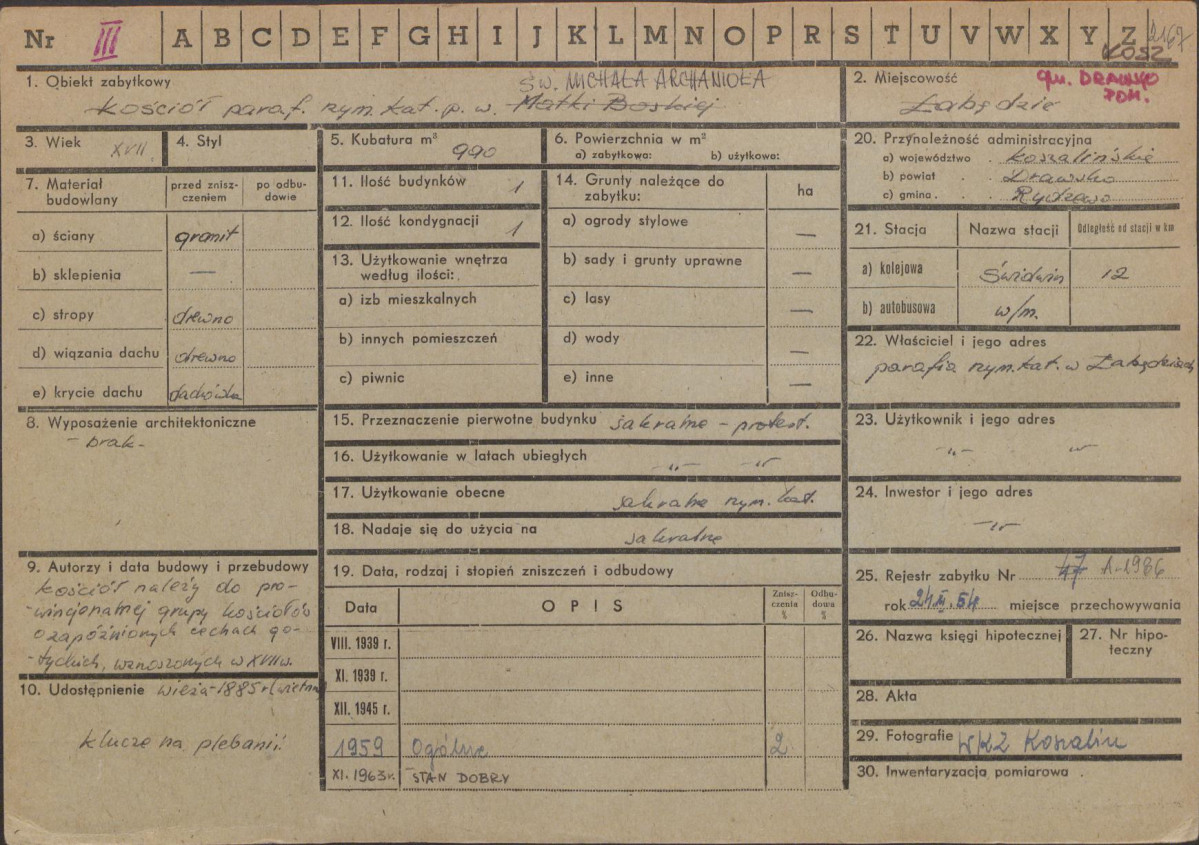 Nr III A B C D E F G H I J K L M N O P R S T U V W X Y Z 2167
KOSZ
1. Obiekt zabytkowy ŚW. MICHAŁA ARCHANIOŁA
kościół paraf. rzym. kat. p. w. Matki Boskiej
2. Miejscowość gm. DRAWSKO
POM.
Zabędzie
3. Wiek XVII
4. Styl
5. Kubatura m³
990
6. Powierzchnia w m²
a) zabytkowa: b) użytkowa:
7. Materiał budowlany
przed zniszczeniem
po odbudowie
a) ściany granit
b) sklepienia —
c) stropy drewno
d) wiązania dachu drewno
e) krycie dachu dachówka
8. Wyposażenie architektoniczne
- brak -
9. Autorzy i data budowy i przebudowy
kościół należy do pro-
wincjonalnej grupy kościołów
o zapóźnionych cechach go-
-tyckich, wznoszonych w XVII w.
wieża - 1885 r
10. Udostępnienie
klucze na plebanii
11. Ilość budynków 1
12. Ilość kondygnacji 1
13. Użytkowanie wnętrza
według ilości:
a) izb mieszkalnych
b) innych pomieszczeń
c) piwnic
14. Grunty należące do
zabytku:
ha
a) ogrody stylowe —
b) sady i grunty uprawne —
c) lasy —
d) wody —
e) inne —
15. Przeznaczenie pierwotne budynku sakralne - protest.
16. Użytkowanie w latach ubiegłych -„- -„-
17. Użytkowanie obecne sakralne rzym. kat.
18. Nadaje się do użycia na sakralne
19. Data, rodzaj i stopień zniszczeń i odbudowy
Data
OPIS
Zniszczenia %
Odbudowa %
VIII. 1939 r.
XI. 1939 r.
XII. 1945 r.
1959 Ogólne 2
XI. 1963 r. STAN DOBRY
20. Przynależność administracyjna
a) województwo . koszalińskie
b) powiat . . Drawsko
c) gmina . . . Rydzewo
21. Stacja
Nazwa stacji
Odległość od stacji w km
a) kolejowa Świdwin 12
b) autobusowa w/m.
22. Właściciel i jego adres
parafia rzym. kat. w
23. Użytkownik i jego adres
-„- -„-
24. Inwestor i jego adres
-„-
25. Rejestr zabytku Nr 47 A-1986
rok 24.II.54 miejsce przechowywania
26. Nazwa księgi hipotecznej
27. Nr hipoteczny
28. Akta
29. Fotografie WKZ Koszalin
30. Inwentaryzacja pomiarowa .